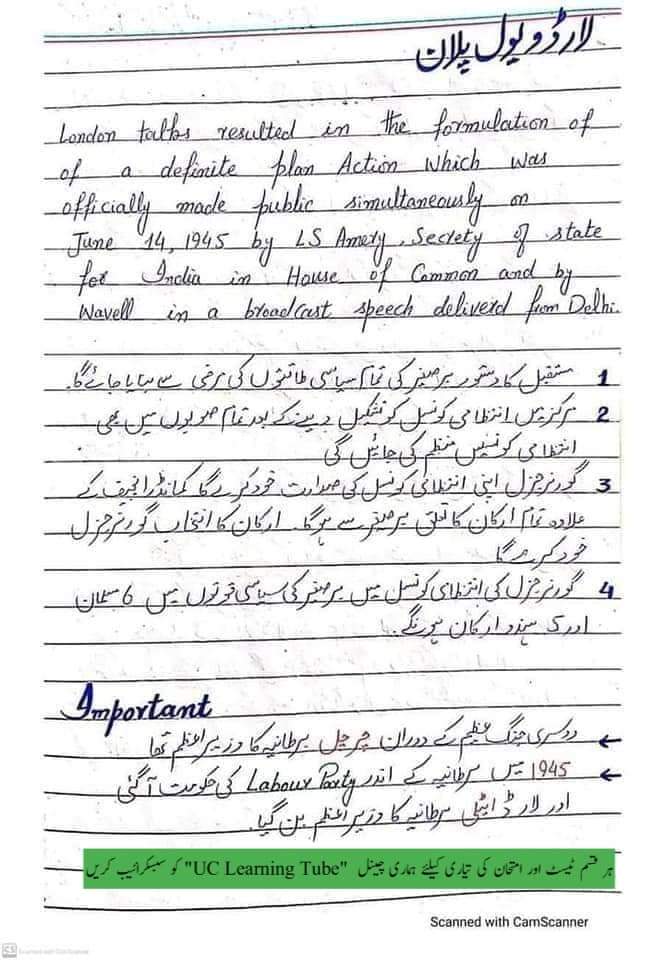 لارڈ ویول پلان
London talks resulted in the formulation of
of a definite plan Action which was
officially made public simultaneously on
June 14, 1945 by LS Amery, Secrety of state
for India in House of Common and by
Wavell in a broadcast speech deliverd from Delhi.
1 مستقبل کا دستور برصغیر کی تمام سیاسی طاقتوں کی مرضی سے بنایا جائے گا۔
2 مرکز میں انتظامی کونسل کو تشکیل دینے کے بعد تمام صوبوں میں بھی
انتظامی کونسلیں منظم کی جائیں گی
3 گورنر جنرل اپنی انتظامی کونسل کی صدارت خود کرے گا کمانڈر انچیف کے
علاوہ تمام ارکان کا تعلق برصغیر سے ہوگا۔ ارکان کا انتخاب گورنر جنرل
خود کرے گا
4 گورنر جنرل کی انتظامی کونسل میں برصغیر کی سیاسی قوتوں میں 6 مسلمان
اور ہندو ارکان ہونگے۔
Important
← دوسری جنگ عظیم کے دوران چرچل برطانیہ کا وزیراعظم تھا
← 1945 میں برطانیہ کے اندر Labour Party کی حکومت آگئی
اور لارڈ ایٹلی برطانیہ کا وزیراعظم بن گیا۔
ہر قسم ٹیسٹ اور امتحان کی تیاری کیلئے ہماری چینل "UC Learning Tube" کو سبسکرائیب کریں
Scanned with CamScanner
CS Scanned with CamScanner